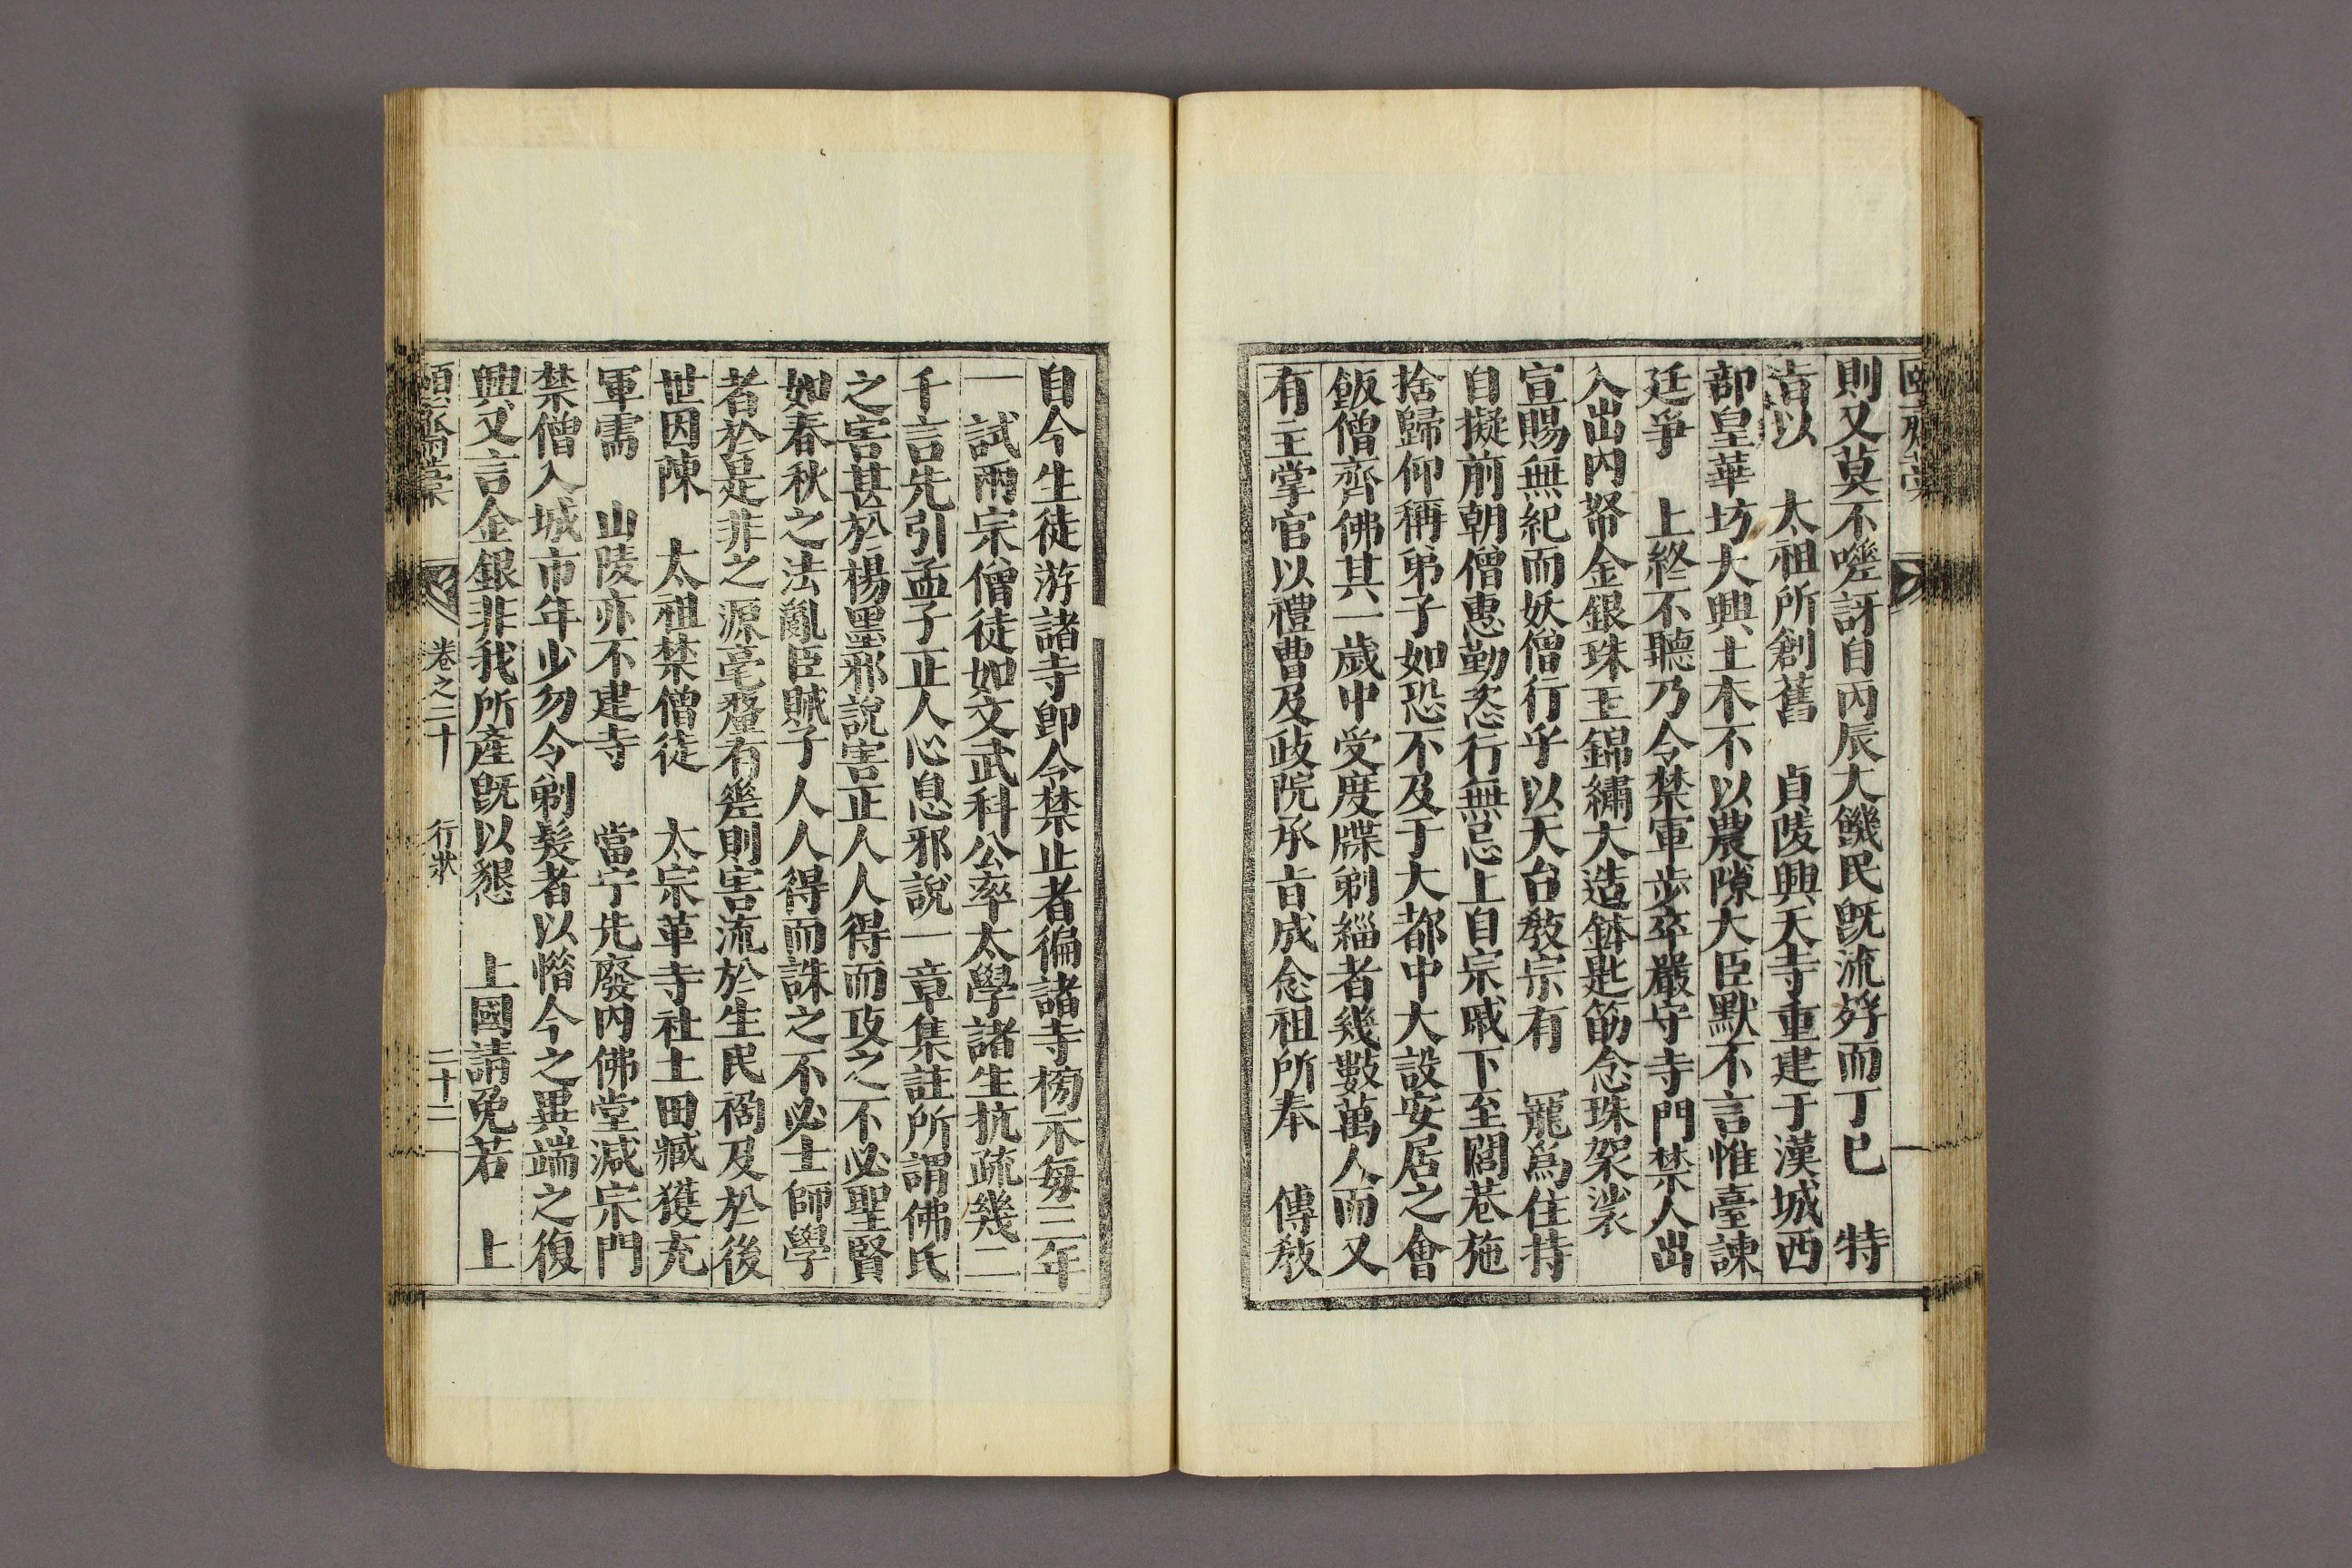 則又莫不嗟訝自丙辰大饑民旣流殍而丁巳　特
旨以　太祖所創舊　貞陵興天寺重建于漢城西
部皇華坊大興土木不以農隙大臣默不言惟臺諫
廷爭　上終不聽乃令禁軍步卒嚴守寺門禁人出
入出內帑金銀珠玉錦繡大造鉢匙筯念珠袈裟
宣賜無紀而妖僧行乎以天台敎宗有　寵爲住持
自擬前朝僧惠勤恣行無忌上自宗戚下至閭巷施
捨歸仰稱弟子如恐不及于大都中大設安居之會
飯僧齊佛其一歲中受度牒剃緇者幾數萬人而又
有主掌官以禮曹及政院承旨成念祖所奉　傳敎
自今生徒游諸寺卽令禁止者徧諸寺榜示每三年
一試兩宗僧徒如文武科公率太學諸生抗疏幾二
千言先引孟子正人心息邪說一章集註所謂佛氏
之害甚於楊墨邪說害正人人得而攻之不必聖賢
如春秋之法亂臣賊子人人得而誅之不必士師學
者於是非之源毫釐有差則害流於生民禍及於後
世因陳　太祖禁僧徒　太宗革寺社土田臧獲充
軍需　山陵亦不建寺　當宁先廢內佛堂減宗門
禁僧入城市年少勿令剃髮者以憯今之異端之復
興又言金銀非我所產旣以懇　上國請免若　上
卷之二十　行狀　二十二